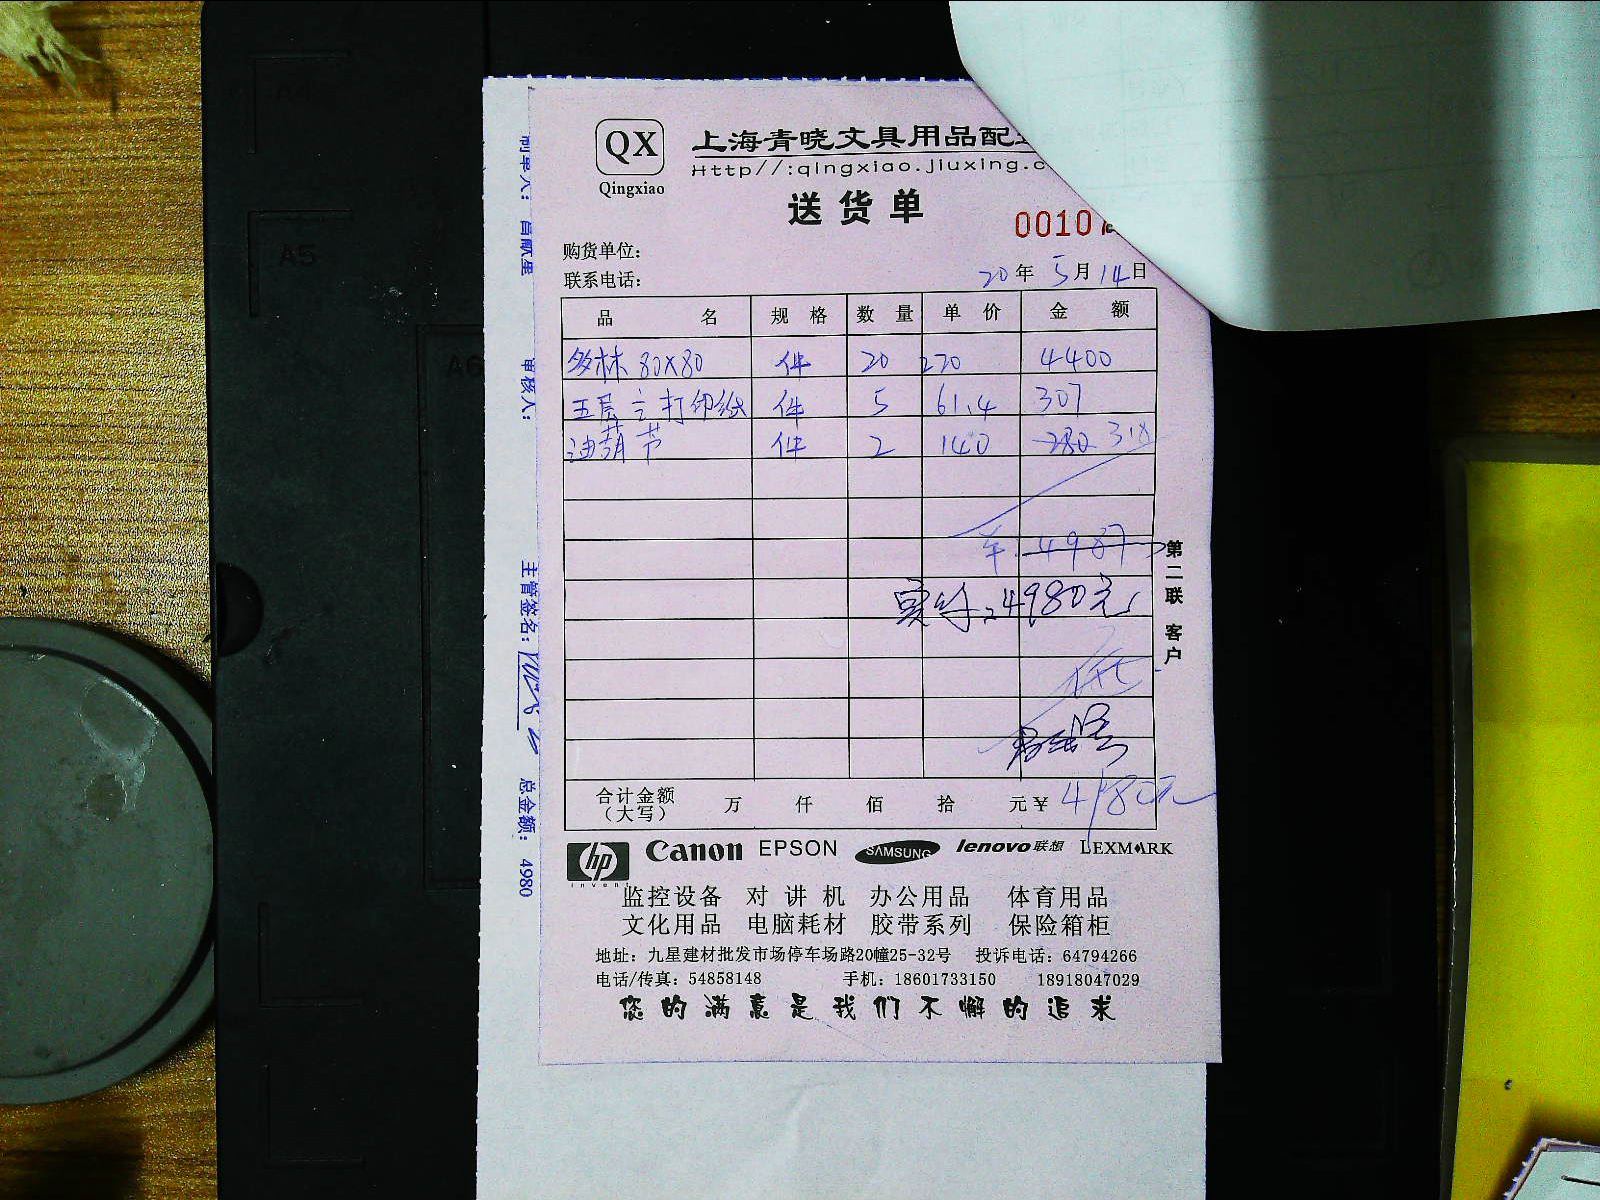 QX
Qingxiao
上海青晓文具用品配
Http//:qingxiao.jiuxing.c
送货单
0010
购货单位:
联系电话:
20年 5月14日
品 名 规 格 数 量 单 价 金 额
多林 80X80 件 20 220 4400
五层 打印纸 件 5 61.4 307
件 2 140 280
4987
实付:4980元
第二联 客户
合计金额 万 仟 佰 拾 元¥
(大写)
hp invent Canon EPSON SAMSUNG lenovo联想 LEXMARK
监控设备 对讲机 办公用品 体育用品
文化用品 电脑耗材 胶带系列 保险箱柜
地址: 九星建材批发市场停车场路20幢25-32号 投诉电话: 64794266
电话/传真: 54858148 手机: 18601733150 18918047029
您的满意是我们不懈的追求
制单人:
审核人:
主管签名:
总金额: 4980
A4
A5
A6